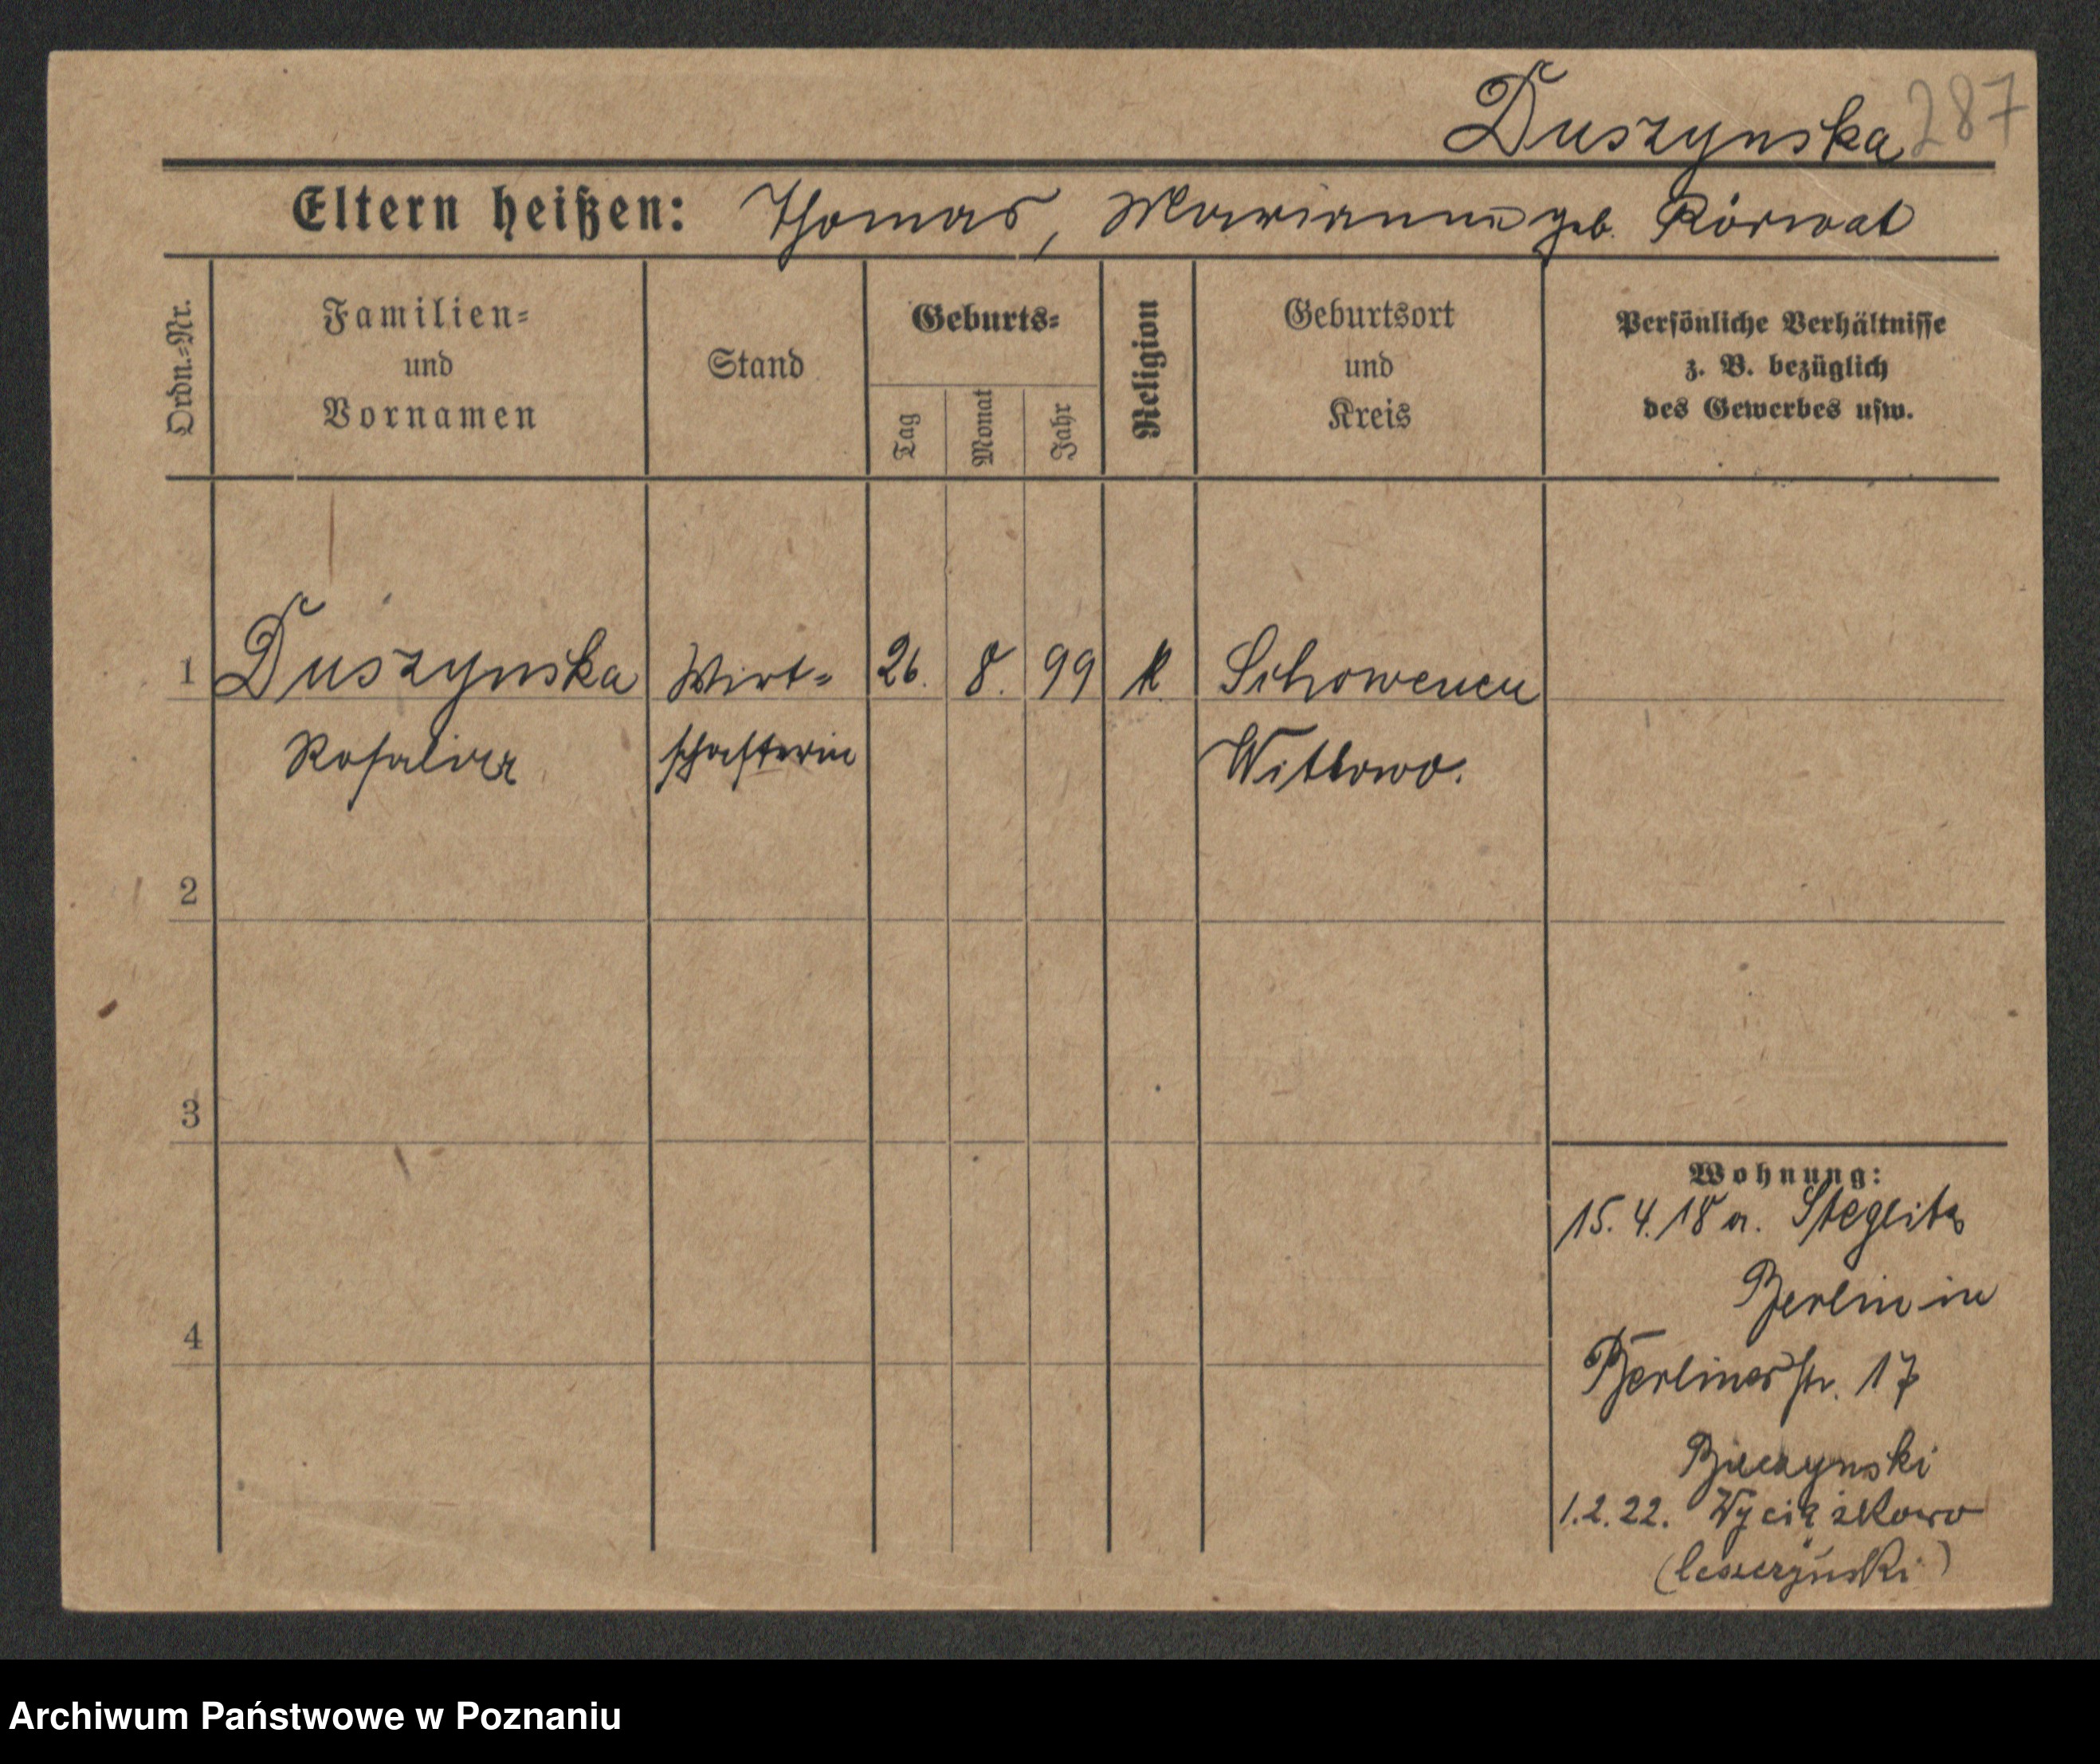 Duszynska 287
Eltern heißen: Thomas, Marianna geb. Rórwat
Ordn.=Nr.
Familien=
und
Vornamen
Stand
Geburts=
Tag
Monat
Jahr
Religion
Geburtsort
und
Kreis
Persönliche Verhältnisse
z. B. bezüglich
des Gewerbes usw.
1 Duszynska Wirt= 26. 8. 99 k.
Rosalia schafterin Witkowo.
2
3
4
Wohnung:
15.4.18 a. Steglitz
Berlin in
Berlinerstr. 17
1.2.22. Wyciążkowo
Archiwum Państwowe w Poznaniu